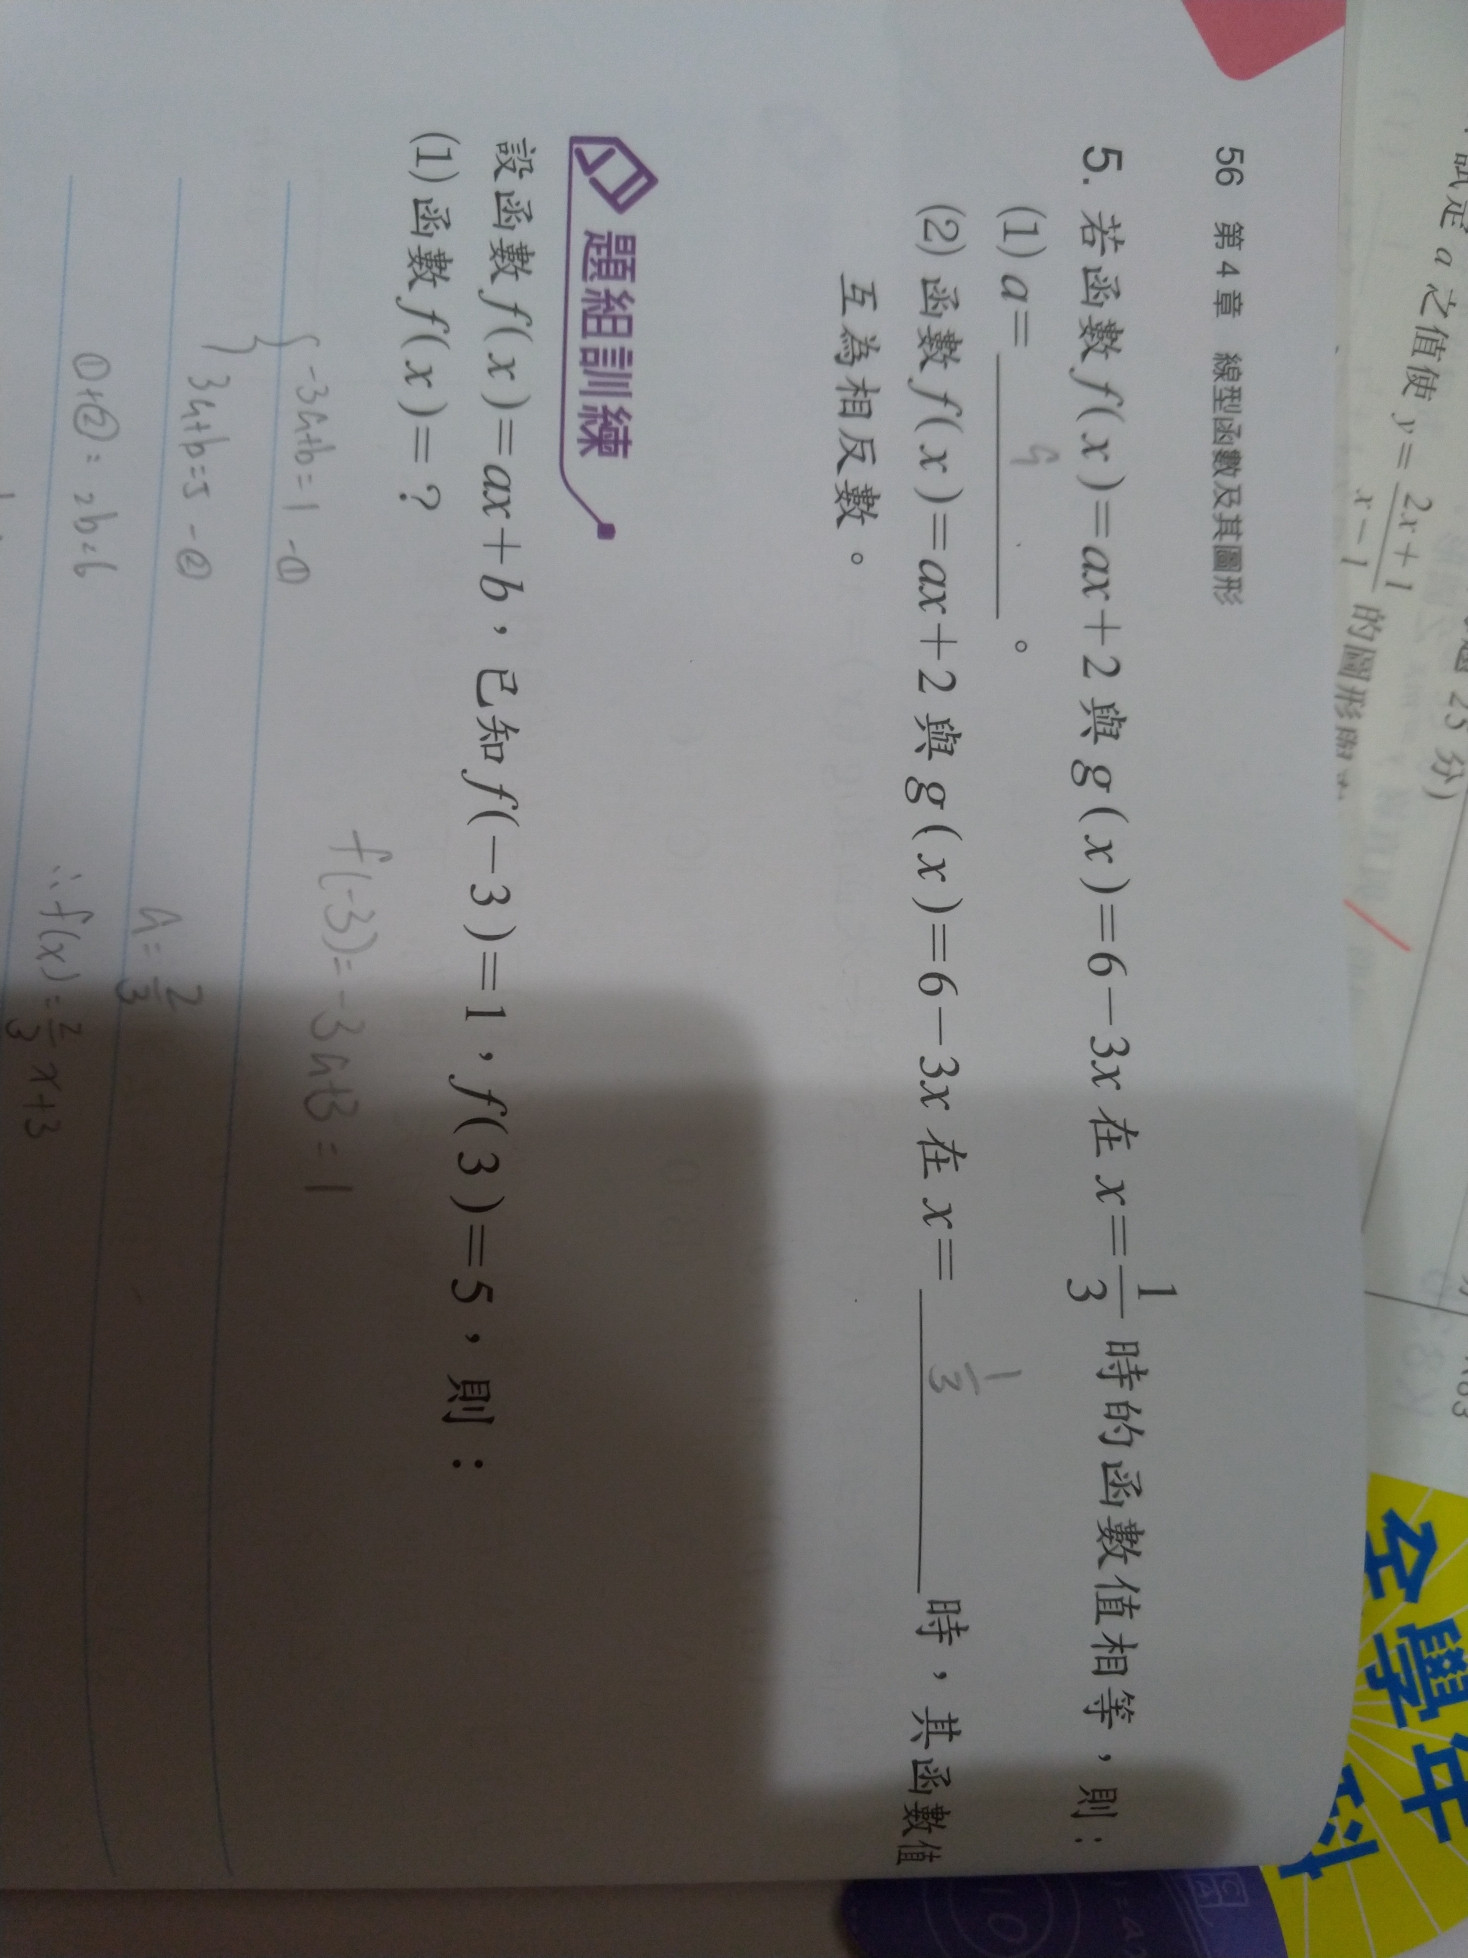 56 第 4 章 線型函數及其圖形
5. 若函數 f(x)=ax+2 與 g(x)=6−3x 在 x=1/3 時的函數值相等，則：
(1) a= 9 。
(2) 函數 f(x)=ax+2 與 g(x)=6−3x 在 x= 1/3 時，其函數值
互為相反數。
題組訓練
設函數 f(x)=ax+b，已知 f(−3)=1，f(3)=5，則：
(1) 函數 f(x)=？
f(-3)=-3a+3=1
{ -3a+b=1 -①
3a+b=5 -②
①+②=2b=6
a=2/3
∴f(x)=2/3 x+3
試定 a 之值使 y=(2x+1)/(x−1) 的圖形
25 分)
全學年
科